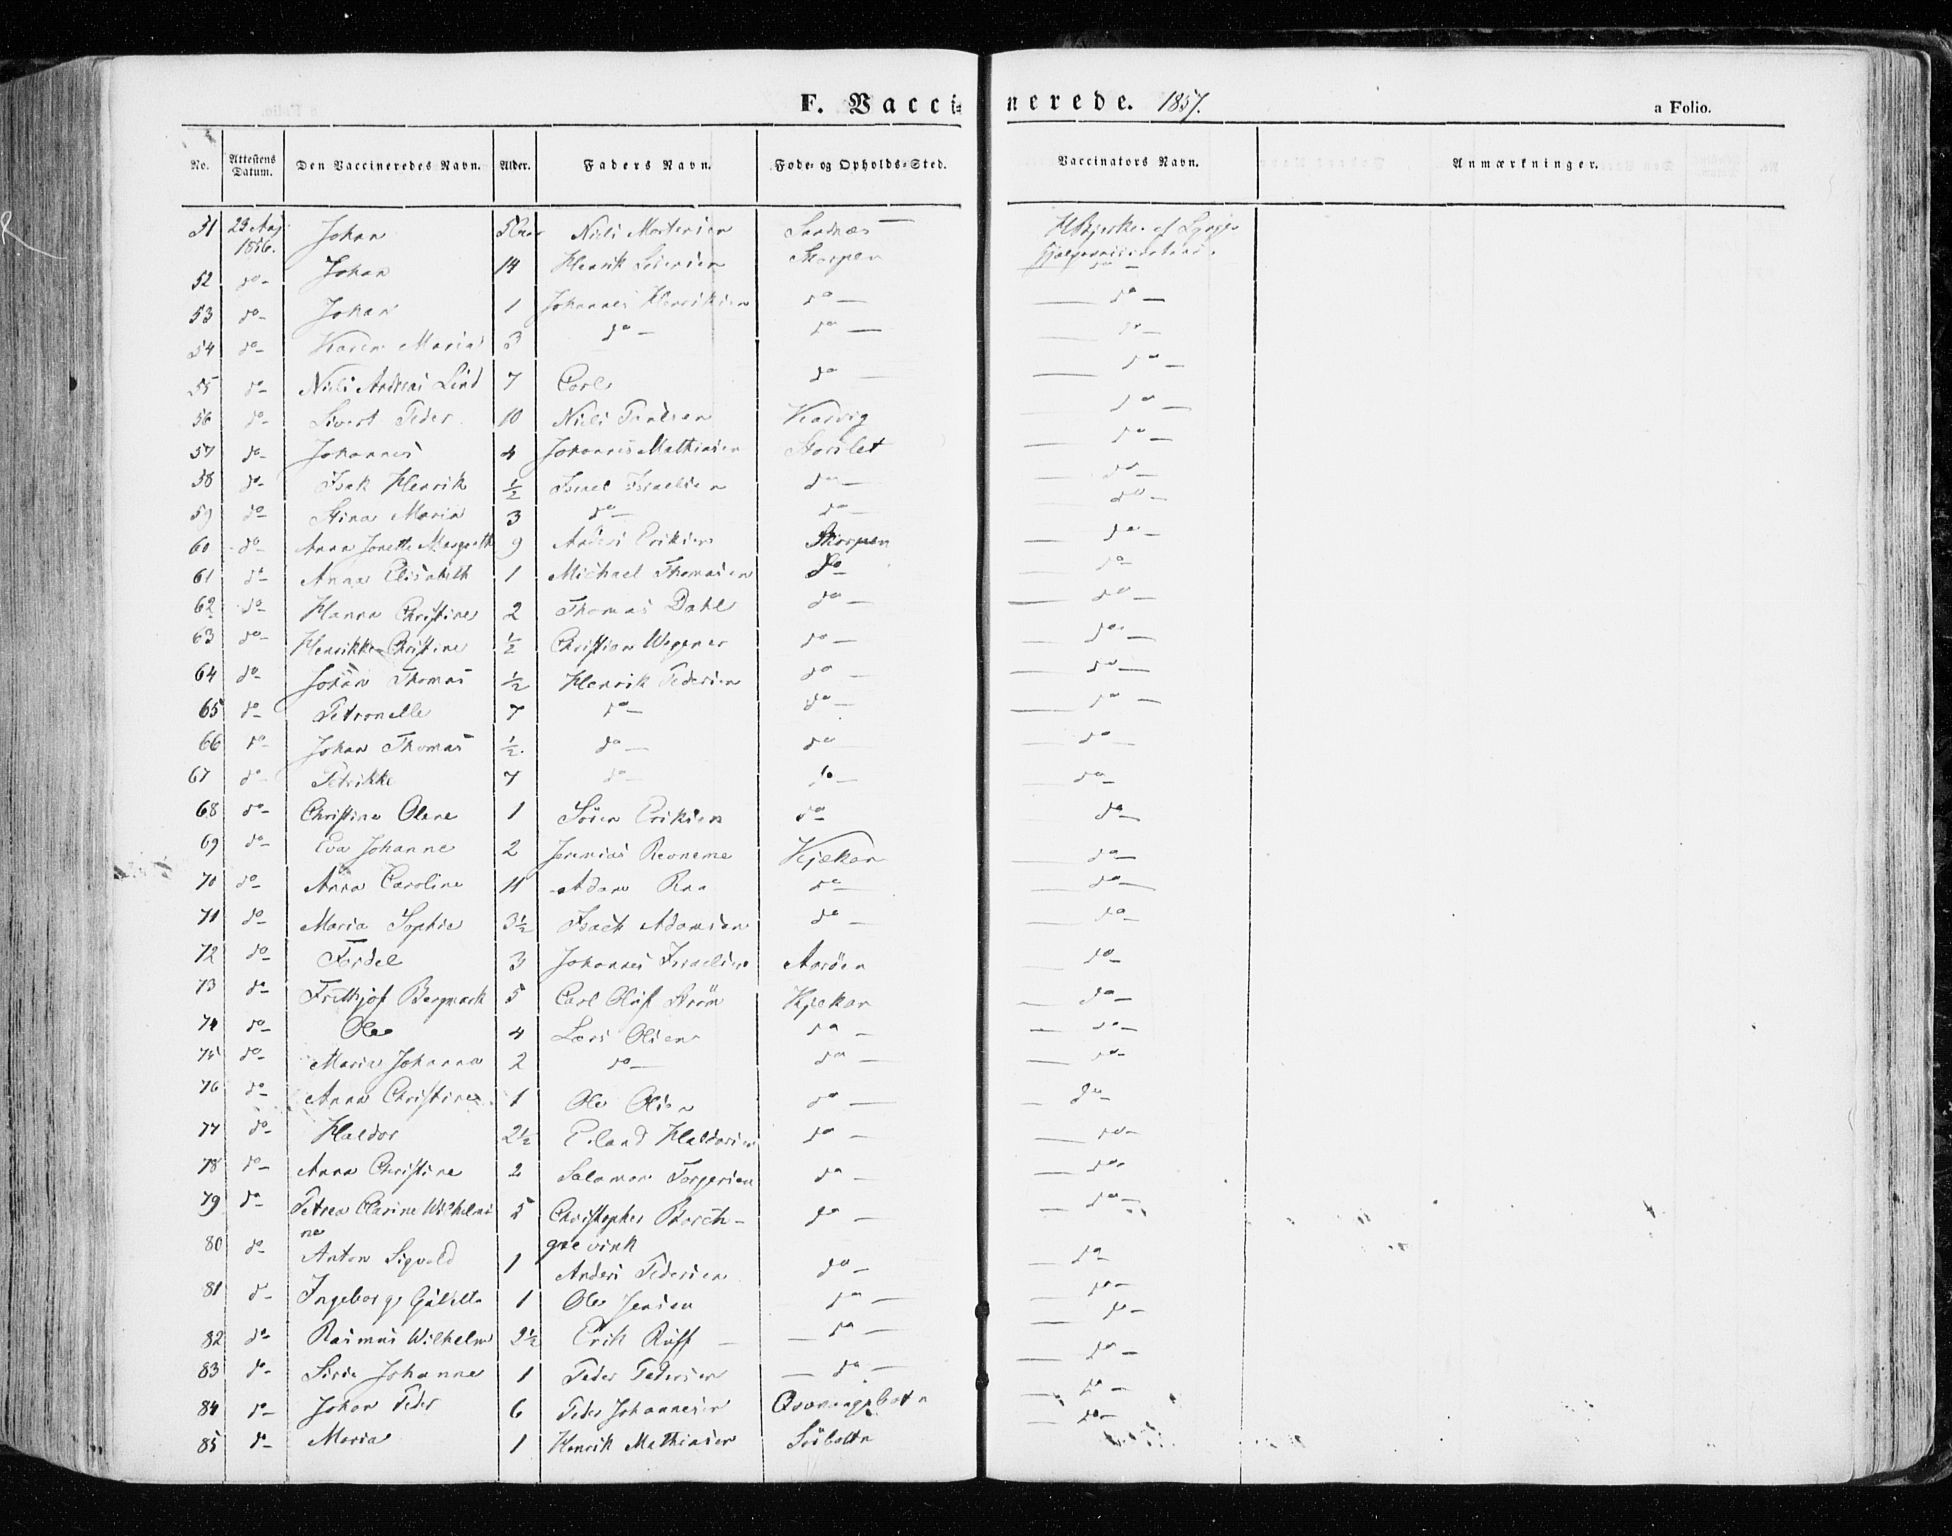 F. Vaccinerede. 1857.
a Folio.
No. Attestens Datum. Den Vaccineredes Navn. Alder. Faders Navn. Føde- og Opholds-Sted. Vaccinators Navn. Anmærkninger.
51 23 Aug 1856. Johan Niels Mortensen Sandnæs
52 do Johan 14 Henrik Skorpen do
53 do Johan 1 Johannes Henriksen do do
54 do Karen Maria 3 do do do
55 do Niels Andreas Lind 7 Carl do do
56 do Sivert Peder 10 Niels Paulsen Karvig do
57 do Johannes 4 Johannes Mathiasen Storslet do
58 do Isak Henrik ½ Israel Israelsen do do
59 do Stina Maria 3 do do do
60 do Anna Jonette Margreth 9 Anders Eriksen Skorpen do
61 do Anna Elisabeth 1 Michael Thomasen do do
62 do Hanna Christine 2 Thomas Dahl do do
63 do Henrikke Christine ½ Christian Wegener do do
64 do Johan Thomas ½ Henrik Pedersen do do
65 do Petronelle 7 do do do
66 do Johan Thomas ½ do do do
67 do Petrikke 7 do do do
68 do Christine Olene 1 Sören Eriksen do do
69 do Eva Johanne 2 Jeremias Kjekan do
70 do Anna Caroline 11 Adam do do
71 do Maria Sophie 3½ Isach Adamsen do do
72 do Fredel 3 Johannes Israelsen Aaröen do
73 do Frithjof Bergmark 5 Carl Olof Ström Kjekan do
74 do Ole 4 Lars Olsen do do
75 do Maria Johanna 2 do do do
76 do Anna Christine 1 Ole Olsen do do
77 do Haldor 2½ Erland Haldorsen do do
78 do Anna Christine 2 Salamon Torgersen do do
79 do Petrea Clarine Wilhelmi- 5 Christopher Borch- do do
ne grevink
80 do Anton Sigvald 1 Anders Pedersen do do
81 do Ingeborg 1 Ole Jensen do do
82 do Rasmus Wilhelm 2½ Erik Ruff do do
83 do Sirie Johanne 1 Peder Pedersen do do
84 do Johan Peder 6 Peder Johannesen Qvænangsbotn do
85 do Maria 1 Henrik Mathiasen do